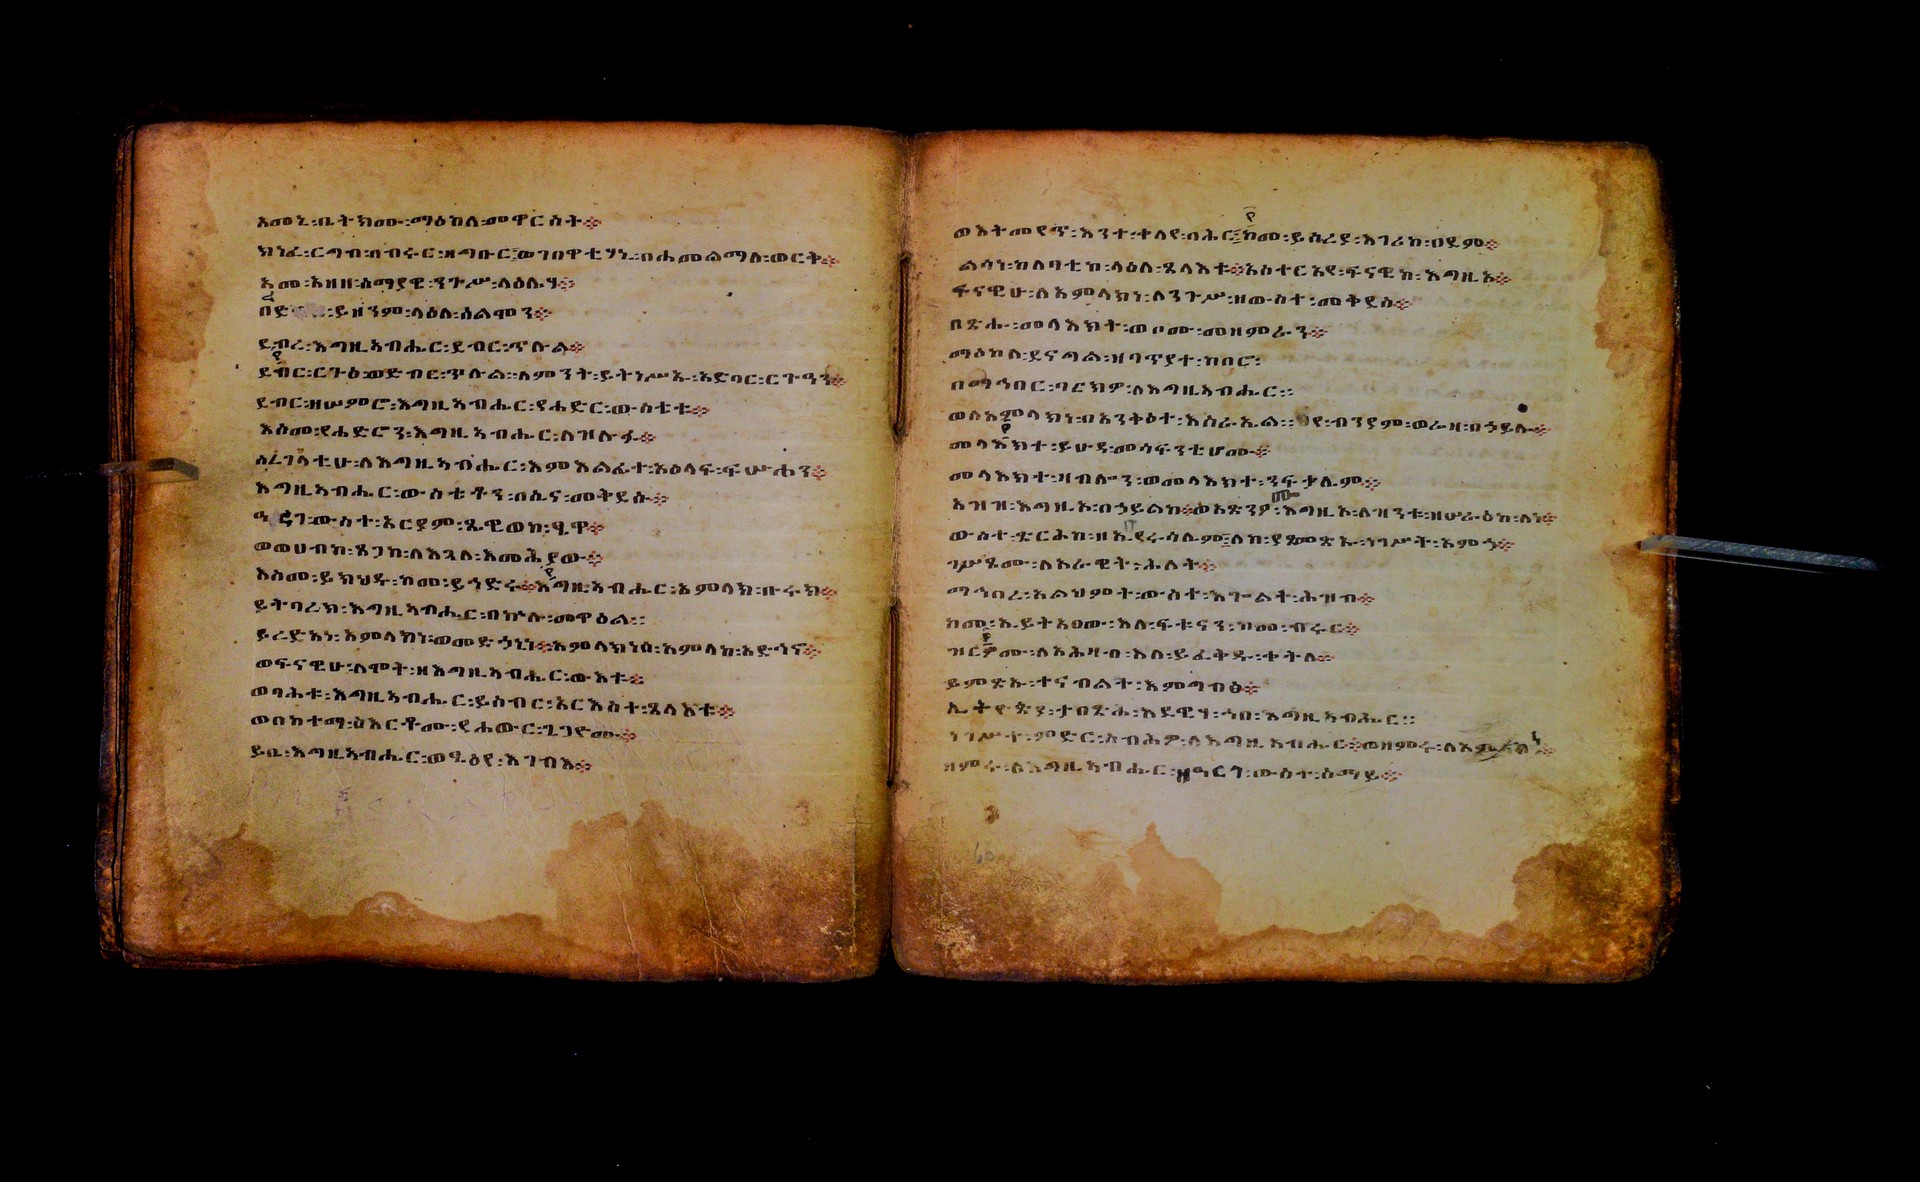 እመኒ፡ቤትክሙ፡ማዕከለ፡መዋርስት፨
ክነፈ፡ርግብ፡በብሩር፡ዘግቡር፡ወገበዋቲሃኒ፡በሐመልማለ፡ወርቅ፨
አመ፡አዘዘ፡ሰማያዊ፡ንጉሥ፡ላዕሌሃ፨
ይዘንም፡ላዕለ፡ሰልሞን፨
ደብረ፡እግዚኣብሔር፡ደብር፡ጥሉል፨
ደብር፡ርጉዕ፡ወድብር፡ጥሉል፡ለምንት፡ይትነሥኡ፡አድባር፡ርጉዓን፨
ደብር፡ዘሠምሮ፡እግዚኣብሔር፡የሐድር፡ውስቴቱ፨
እስመ፡የሐድሮን፡እግዚኣብሔር፡ለዝሉፋ፨
ሰረገላቲሁ፡ለእግዚኣብሔር፡እምእልፊተ፡አዕላፍ፡ፍሡሐን፨
እግዚኣብሔር፡ውስቴቶን፡በሲና፡መቅደሱ፨
ዓረገ፡ውስተ፡አርያም፡ጼዊወከ፡ፄዋ፨
ወወሀብከ፡ጸጋከ፡ለእጓለ፡እመሕያው፨
እስመ፡ይክህዱ፡ከመ፡ይኅድሩ፨እግዚኣብሔር፡አምላክ፡ቡሩክ፨
ይትባረክ፡እግዚኣብሔር፡በኵሉ፡መዋዕል፡፡
ይረድአነ፡አምላክነ፡ወመድኃኒነ፨አምላክነሰ፡አምላከ፡አድኅኖ፨
ወፍናዊሁ፡ለሞት፡ዘእግዚኣብሔር፡ውእቱ፨
ወባሕቱ፡እግዚኣብሔር፡ይሰብር፡አርእስተ፡ጸላእቱ፨
ወበከተማ፡ስእርቶሙ፡የሐውር፡ጌጋዮሙ፨
ይቤ፡እግዚኣብሔር፡ወዒዕየ፡እገብእ፨
ወእትመየጥ፡እንተ፡ቀላየ፡ባሕር፡ከመ፡ይስረይ፡እገሪከ፡በደም፨
ልሳነ፡ከለባቲከ፡ላዕለ፡ጸላእቱ፨አስተርአየ፡ፍናዊከ፡እግዚኦ፨
ፍናዊሁ፡ለአምላክነ፡ለንጉሥ፡ዘውስተ፡መቅደስ፨
በጽሑ፡መላእክት፡ወቦሙ፡መዘምራን፨
ማዕከለ፡ደናግል፡ዘባጥያተ፡ከበሮ፡
በማኅበር፡ባርክዎ፡ለእግዚኣብሔር፡፡
ወለአምላክነ፡በአንቅዕተ፡እስራኤል፡፡ብንያም፡ወሬዛ፡በኃይሉ፨
መላእክተ፡ይሁዳ፡መሳፍንቲሆሙ፨
መላእክተ፡ዛብሎን፡ወመላእክተ፡ንፍታሌም፨
አዝዝ፡እግዚኦ፡በኃይልከ፨ወአጽንዖ፡እግዚኦ፡ለዝንቱ፡ዘሠራዕከ፡ለነ፨
ውስተ፡ጽርሕከ፡ዘኢየሩሳሌም፡ለከ፡ያመጽኡ፡ነገሥት፡አምኃ፨
ገሥጾሙ፡ለአራዊት፡ሕለት፨
ማኅበረ፡አልህምት፡ውስተ፡እጐልት፡ሕዝብ፨
ከመ፡ኢይትአፀው፡እለ፡ፍቱናን፡ከመ፡ብሩር፨
ዝርዎሙ፡ለአሕዛብ፡እለ፡ይፈቅዱ፡ቀትለ፨
ይምጽኡ፡ተናብልት፡እምግብፅ፨
ኢትዮጵያ፡ታበጽሕ፡እደዊሃ፡ኀበ፡እግዚኣብሔር፡፡
ነገሥተ፡ምድር፡ሰብሕዎ፡ለእግዚኣብሔር፨ወዘምሩ፡
ዘምሩ፡ለእግዚኣብሔር፡ዘዓርገ፡ውስተ፡ሰማይ፨